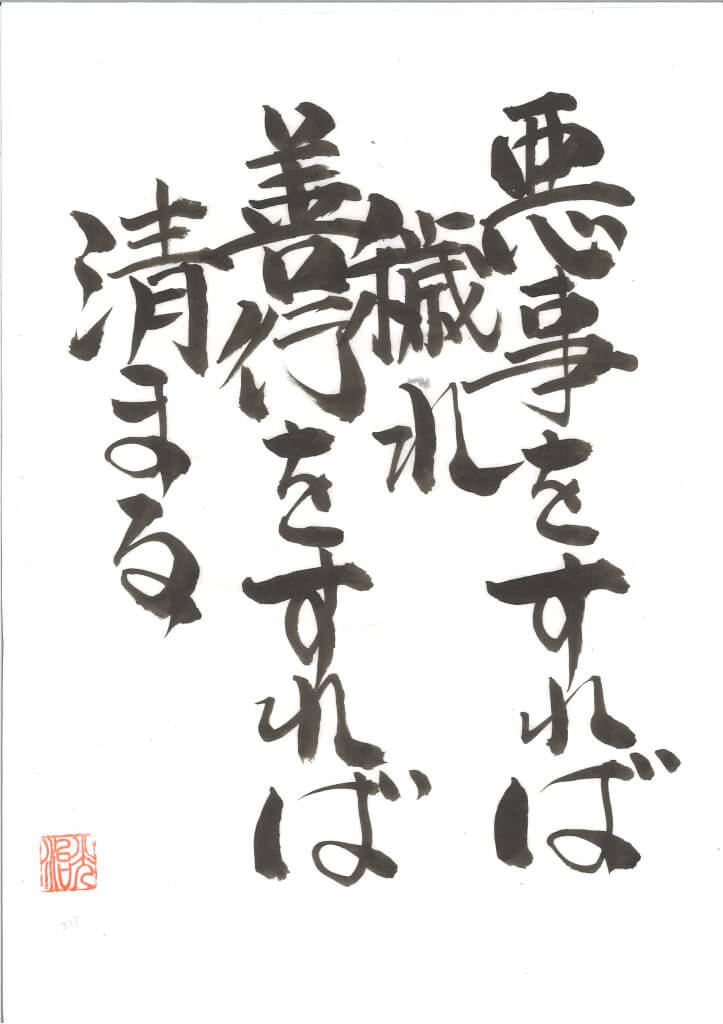 悪事をすれば
穢れ
善行をすれば
清まる